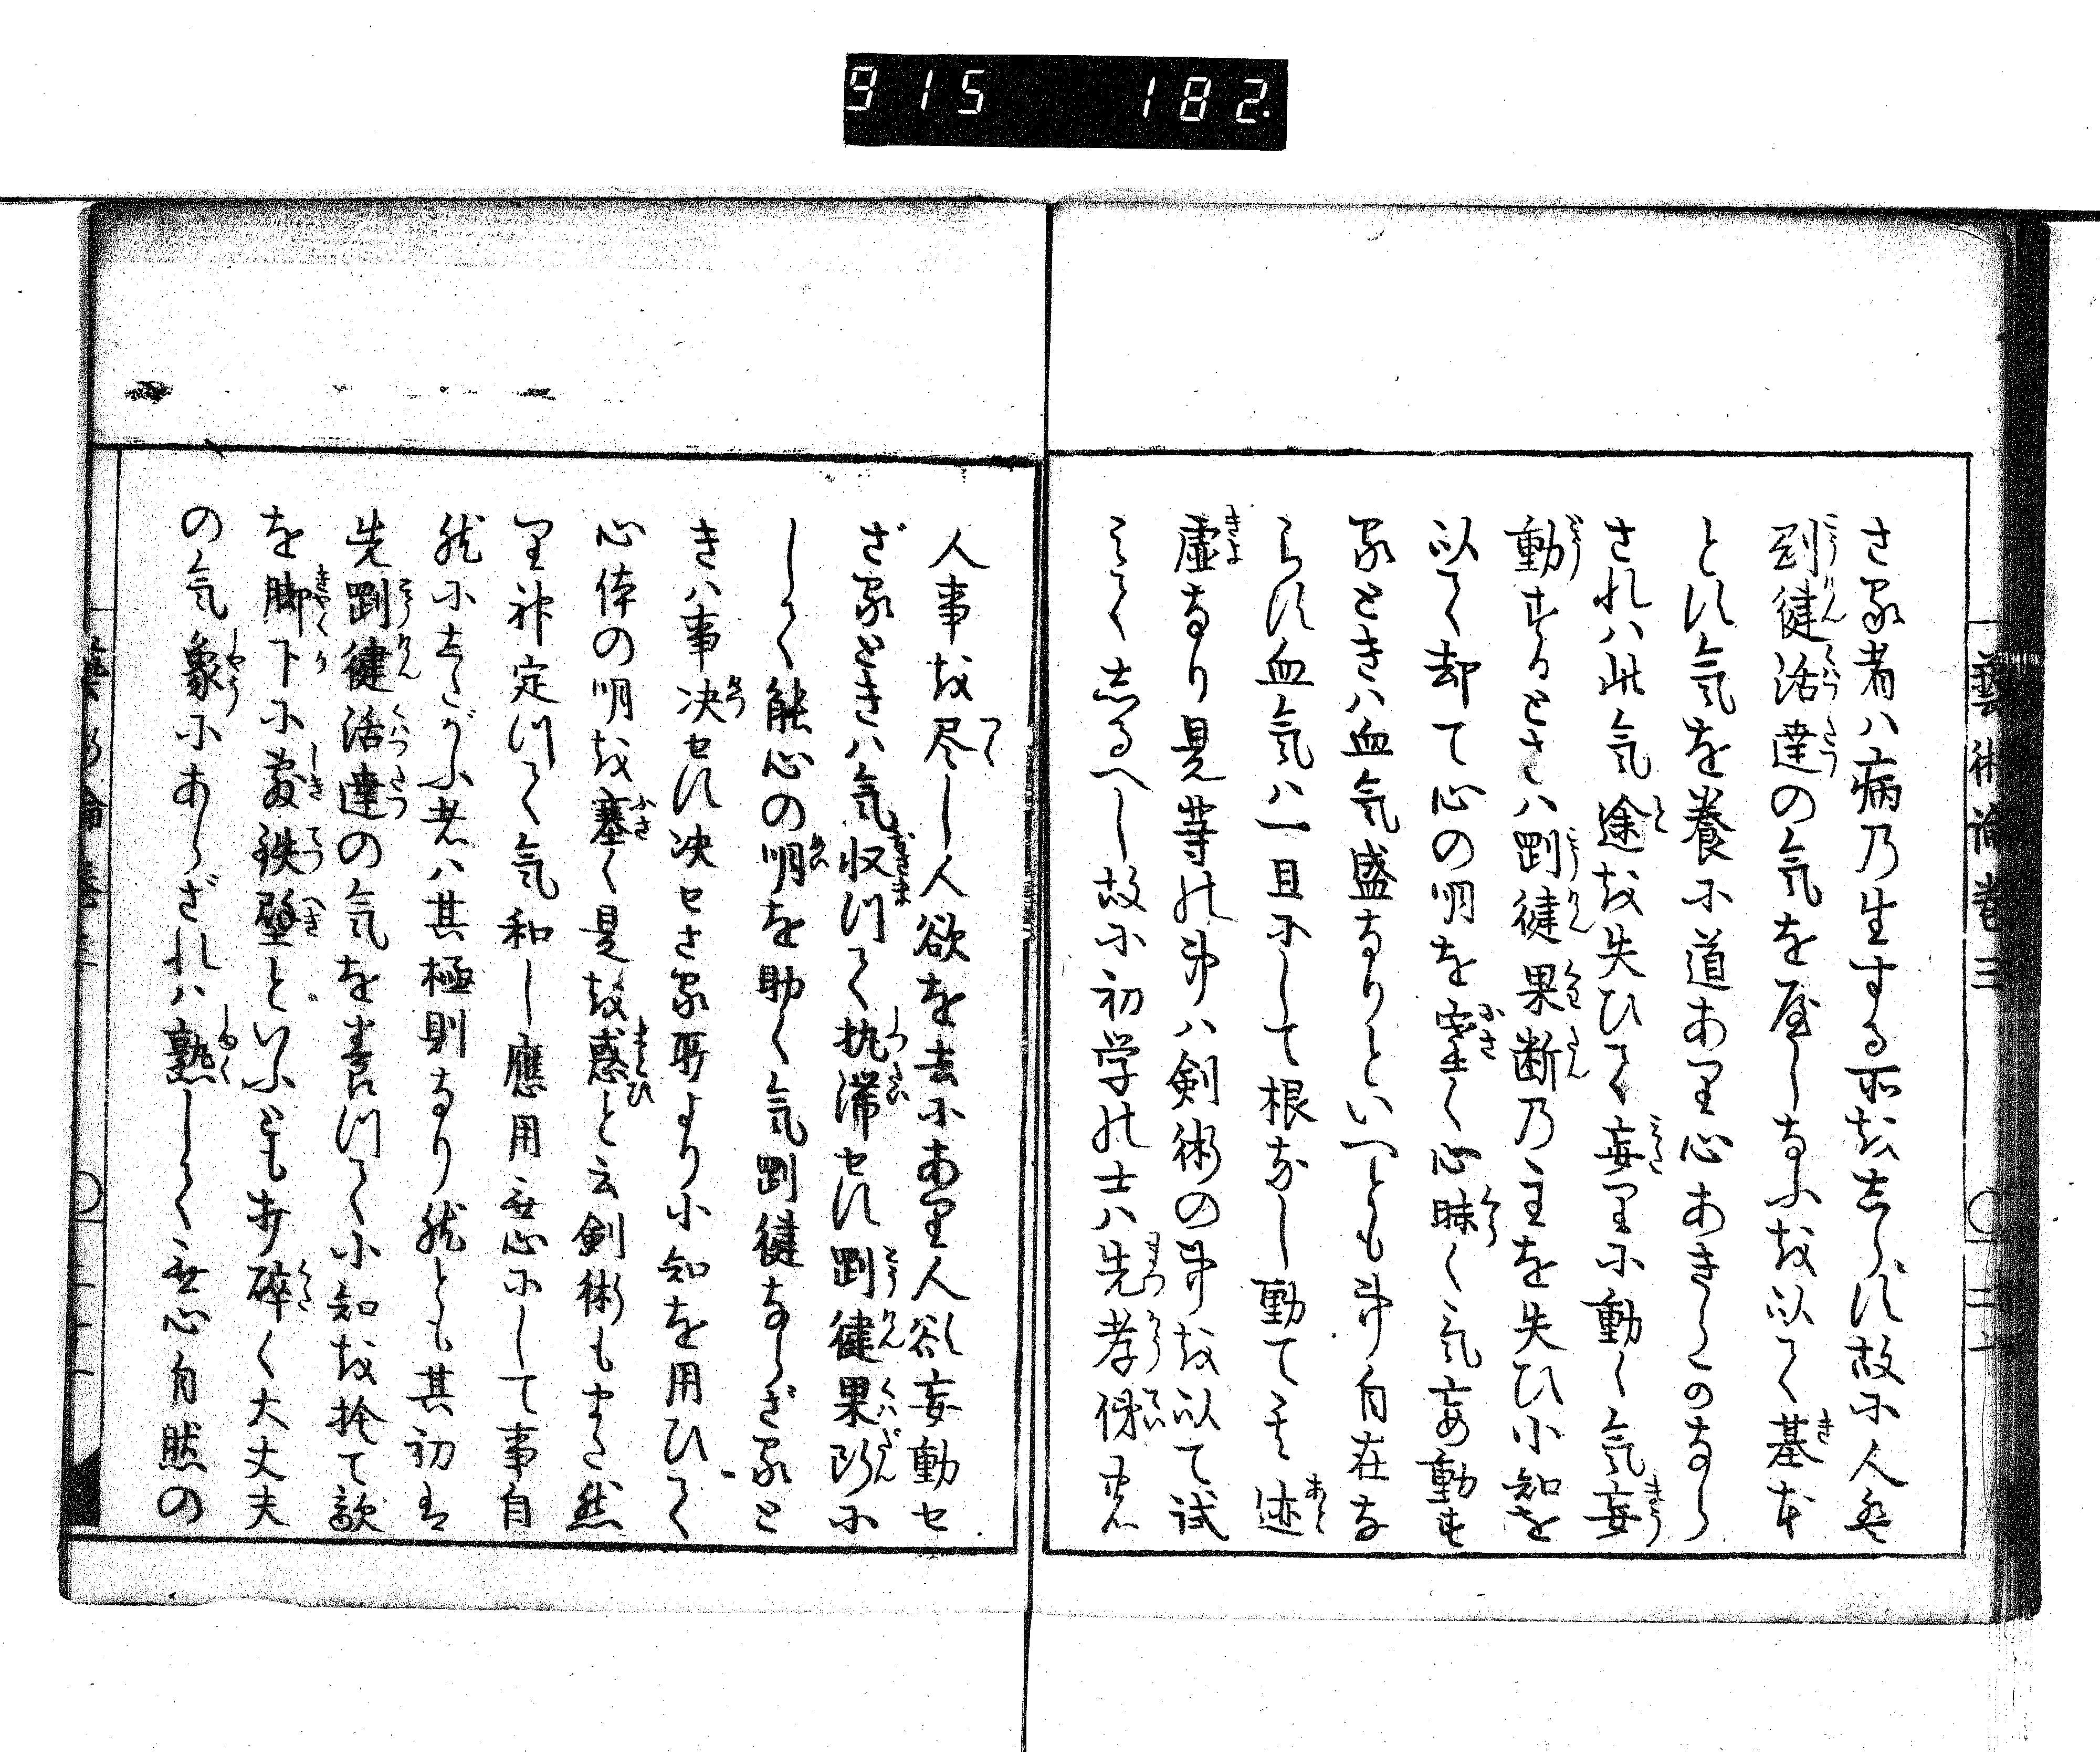 915 182.
藝術論巻三 〇二十
さる者ハ病乃生する所を志らす故に人無
剛健活達の気を屈しなふを以て基本
とす気を養に道あり心あきらかなら
されハ此気途を失ひて妄りに動く気妄
動するときハ剛健果断乃主を失ひ小知を
以て却て心の明を塞く心昧く気妄動す
るときハ血気盛なりといへとも事自在な
らす血気ハ一旦にして根なし動て其迹
虚なり是等の事ハ剣術の事を以て試
みて志るへし故に初学の士ハ先孝悌
人事を尽し人欲を去にあり人欲妄動せ
ざるときハ気収つて执滞せす剛健果断に
して能心の明を助く気剛健ならざると
きハ事决せす决せさる所より小知を用ひて
心体の明を塞く是を惑と云剣術もまた然
り神定つて気和し應用無心にして事自
然にしたがふ者ハ其極則なり然とも其初は
先剛健活達の気を養つて小知を捨て敵
を脚下に敷鉄壁といふとも打碎く大丈夫
の気象にあらざれハ熟して無心自然の